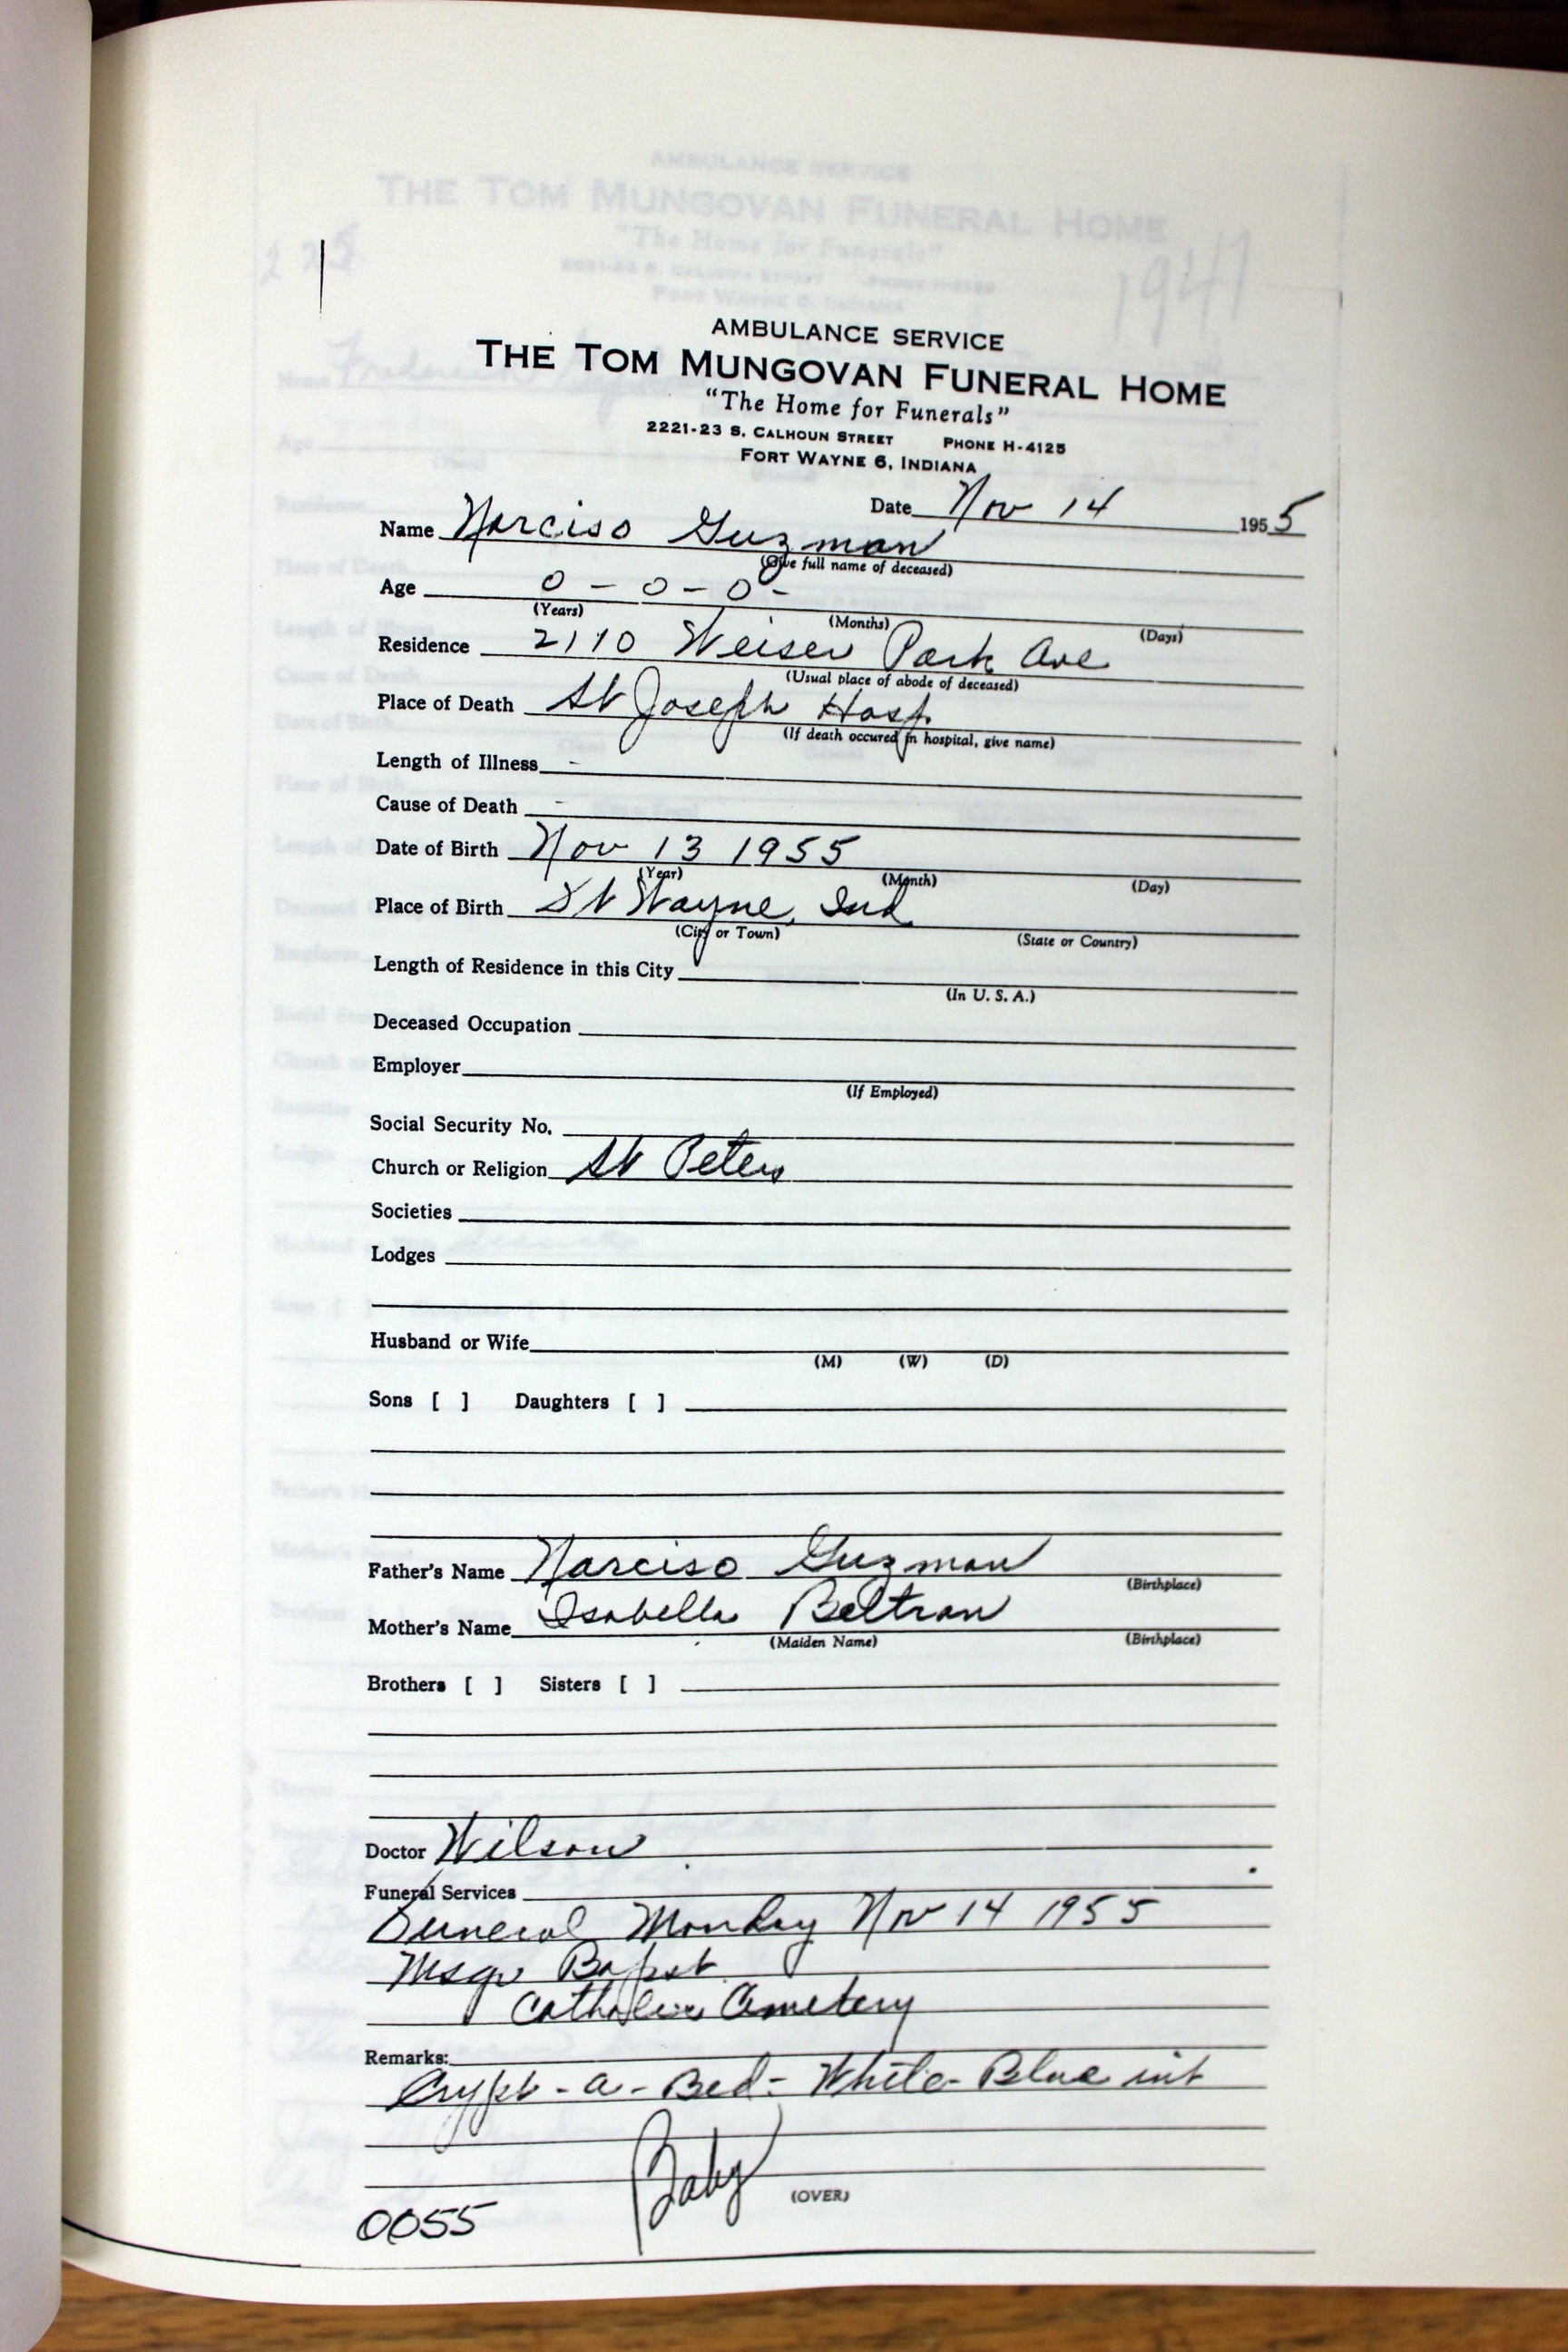 AMBULANCE SERVICE
THE TOM MUNGOVAN FUNERAL HOME
"The Home for Funerals"
2221-23 S. CALHOUN STREET PHONE H-4125
FORT WAYNE 6, INDIANA
Date Nov 14 1955
Name Narciso Guzman
(Give full name of deceased)
Age 0 - 0 - 0 -
(Years) (Months) (Days)
Residence 2110 Weiser Park Ave
(Usual place of abode of deceased)
Place of Death St Joseph Hosp.
(If death occured in hospital, give name)
Length of Illness -
Cause of Death -
Date of Birth Nov 13 1955
(Year) (Month) (Day)
Place of Birth Ft Wayne, Ind
(City or Town) (State or Country)
Length of Residence in this City
(In U. S. A.)
Deceased Occupation
Employer
(If Employed)
Social Security No.
Church or Religion St Peters
Societies
Lodges
Husband or Wife
(M) (W) (D)
Sons [ ] Daughters [ ]
Father's Name Narciso Guzman
(Birthplace)
Mother's Name Isabella Beltran
(Maiden Name) (Birthplace)
Brothers [ ] Sisters [ ]
Doctor Wilson
Funeral Services
Funeral Monday Nov 14 1955
Msgr Bapst
Catholic Cemetery
Remarks:
Crypt-a-Bed- White- Blue int
Baby
(OVER)
0055